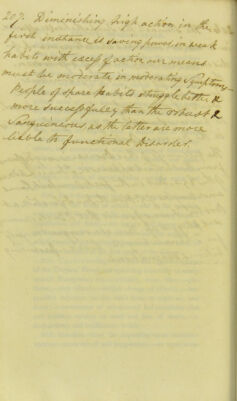 207. Diminishing high action in the
first instance is saving power, in weak
habits with excess of action our means
must be moderate in moderating symptoms
People of spare habits struggle better &
more successfully than the robust &
Sanguineous, as the latter are more
liable to functional Disorder.